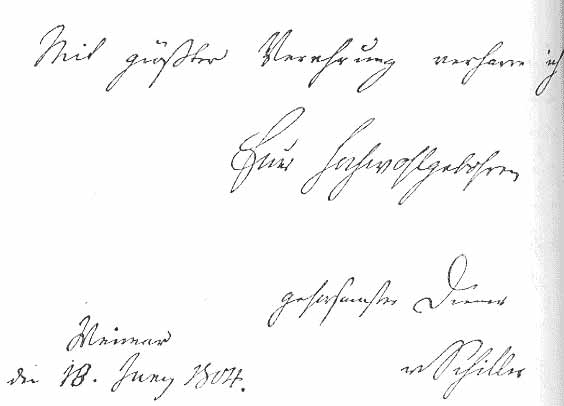 Mit größter Verehrung verharre ich
Euer Hochwohlgebohren
gehorsamster Diener
Weimar
den 18. Juny 1804.
v Schiller